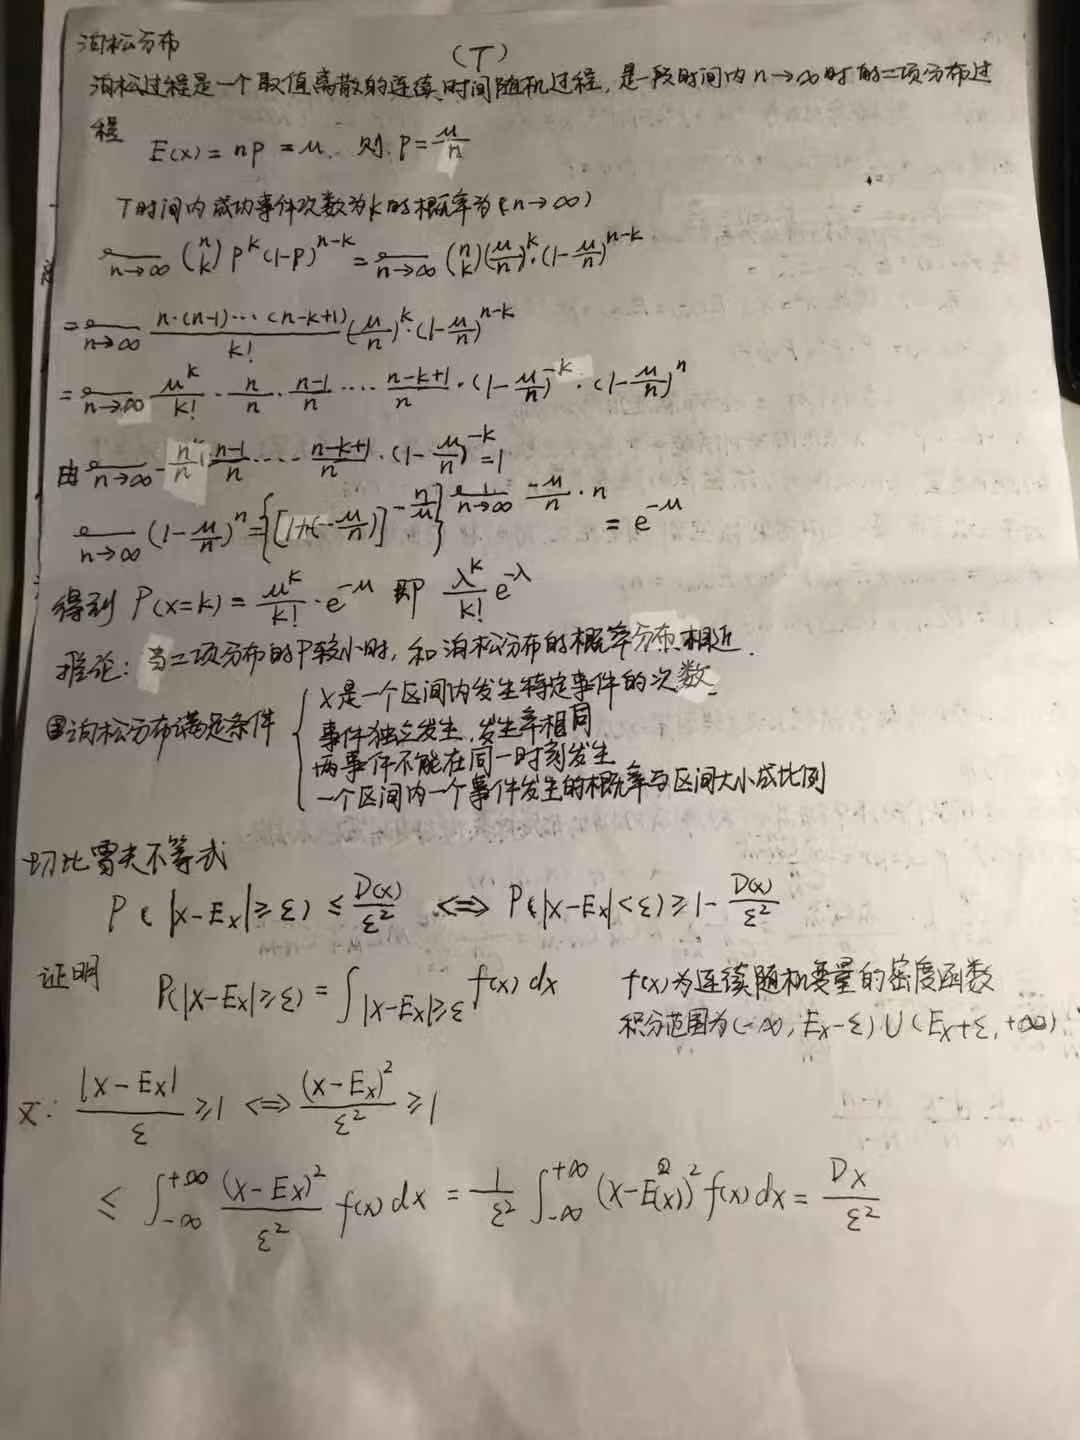 泊松分布
(T)
泊松过程是一个取值离散的连续时间随机过程,是一段时间内n→∞时的二项分布过
程 E(x)=np=μ. 则 p=μ/n
T时间内成功事件次数为k的概率为(n→∞)
lim n→∞ (n k) p^k (1-p)^(n-k) = lim n→∞ (n k)(μ/n)^k·(1-μ/n)^(n-k)
= lim n→∞ n·(n-1)···(n-k+1)/k! (μ/n)^k·(1-μ/n)^(n-k)
= lim n→∞ μ^k/k! · n/n · n-1/n ···· n-k+1/n · (1-μ/n)^(-k) · (1-μ/n)^n
由 lim n→∞ n/n · n-1/n ···· n-k+1/n · (1-μ/n)^(-k) = 1
lim n→∞ (1-μ/n)^n = {[1+(-μ/n)]^(-n/μ)}^(lim n→∞ -μ/n · n) = e^(-μ)
得到 P(x=k) = μ^k/k! · e^(-μ) 即 λ^k/k! e^(-λ)
推论: 当二项分布的P较小时,和泊松分布的概率分布相近.
泊松分布满足条件 { x是一个区间内发生特定事件的次数
事件独立发生,发生率相同
两事件不能在同一时刻发生
一个区间内一个事件发生的概率与区间大小成比例
切比雪夫不等式
P(|x-Ex|≥ε) ≤ D(x)/ε² <=> P(|x-Ex|<ε) ≥ 1- D(x)/ε²
证明 P(|x-Ex|≥ε) = ∫|x-Ex|≥ε f(x) dx f(x)为连续随机变量的密度函数
积分范围为(-∞, Ex-ε)∪(Ex+ε, +∞)
又: |x-Ex|/ε ≥1 <=> (x-Ex)²/ε² ≥1
≤ ∫-∞ +∞ (x-Ex)²/ε² f(x) dx = 1/ε² ∫-∞ +∞ (x-E(x))² f(x) dx = Dx/ε²